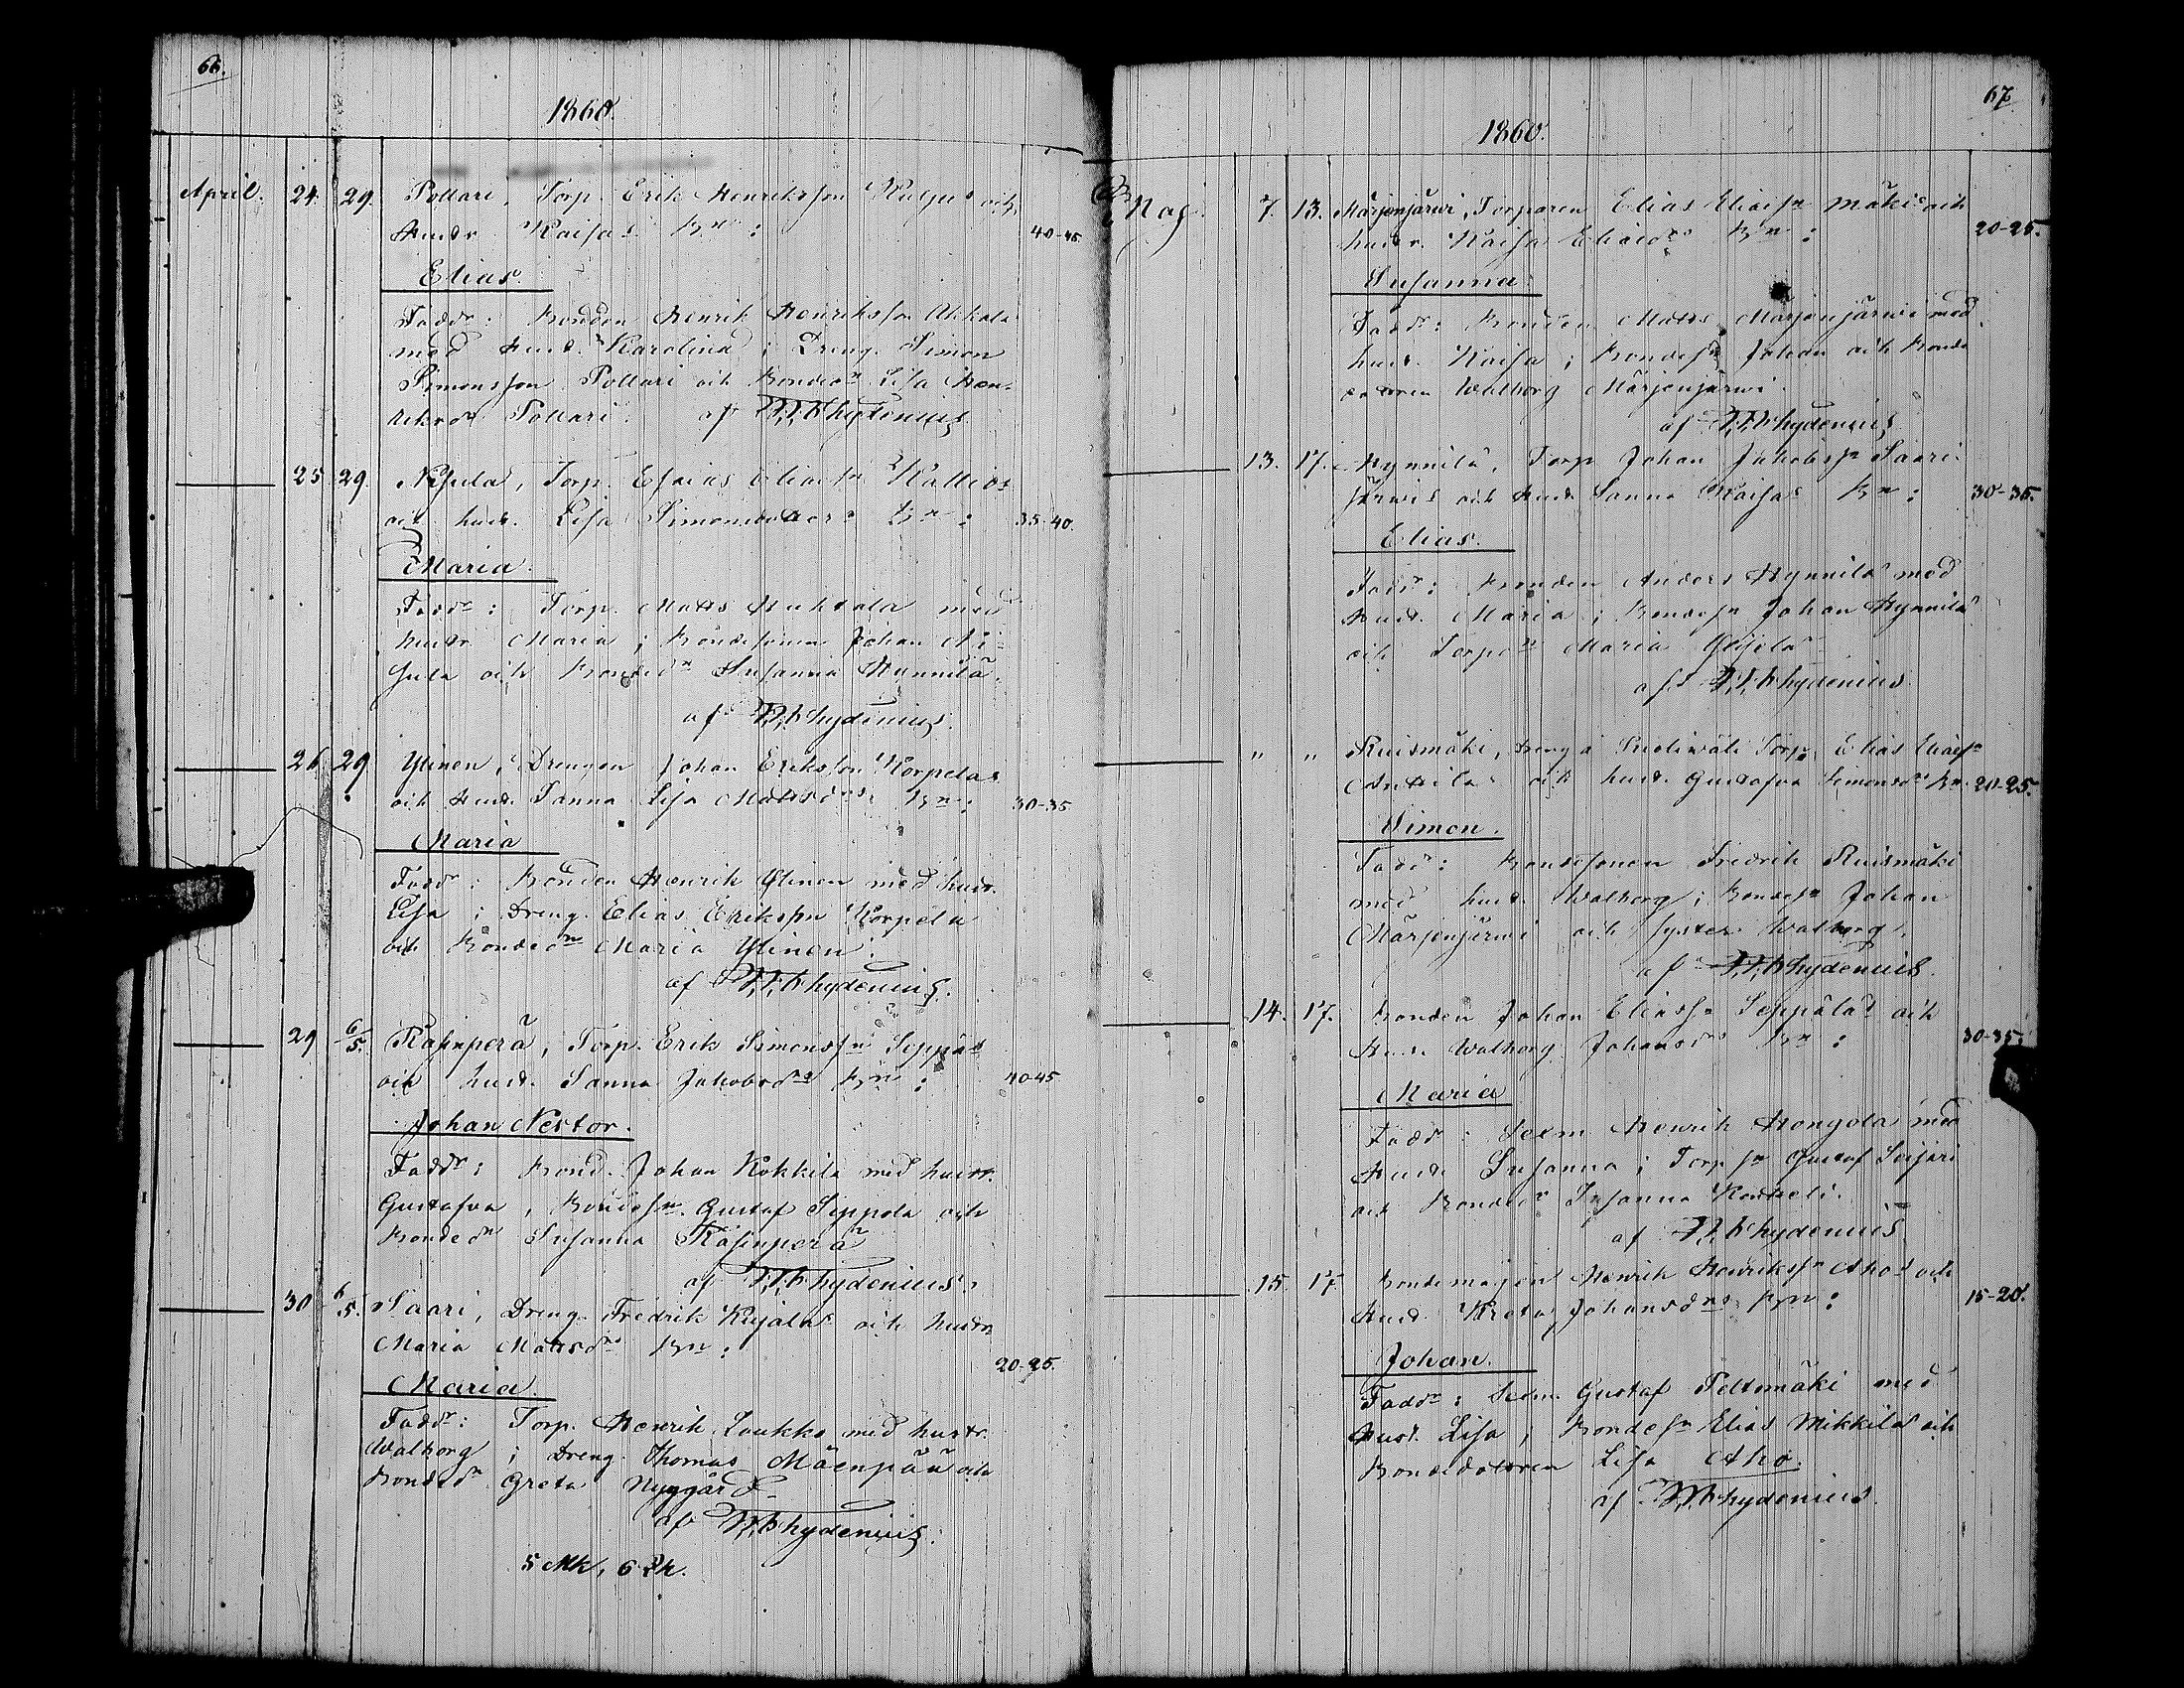 66.
1860.
April. 24. 29. Pollari, Torp. Erik Henriksson och
Hustr. Kaisas Bn: 40-45.
Elias.
Faddr: Bonden Henrik Henriksson Akkala
med Hust. Karolina; Dreng. Simon
Simonsson Pollari och Bondedr Lisa Hen-
riksdr Pollari. af Hydenius
25 29. Nisula, Torp. Esaias Eliassn Kallios
och hust. Lisa Simonsdotters Bn: 35-40.
Maria.
Faddr: Torp. Matts Huhtala med
Hustr Maria; Bondesonen Johan Ni-
sula och Bondedr Susanna Hynnilä.
af Hydenius.
26 29 Ylinen, Drengen Johan Eriksson Korpelas
och Hust. Sanna Lisa Mattsdrs Bn: 30-35
Maria
Faddr: Bonden Henrik Ylinen med hustr.
Lisa; Dreng. Elias Eriksson Korpela
och Bondedr Maria Ylinen.
af Hydenius.
29 6/5. Räsinperä, Torp. Erik Simonssn Seppäs
och hust. Sanna Jakobsdrs Bn: 40-45
Johan Nestor.
Faddr: Bond. Johan Kokkila med hustr.
Gustafva, Bondesn. Gustaf Seppola och
Bondedr Susanna Räsinperä
af Hydenius.
30 6/5. Saari, Dreng. Fredrik Kujalas och hustr
Maria Mattsdrs Bn: 20-25.
Maria.
Faddr: Torp. Henrik Laukko med hustr.
Walborg; Dreng. Thomas Mäenpää och
Bondedr Greta Nygård
af Hydenius.
5 Mk, 6 Qk.
67
1860.
Maj. 7. 13. Märjenjärwi, Torparen Elias Eliassn Mäkis och
hustr. Kaisa Eliasdrs Bn: 20-25.
Susanna.
Faddr: Bonden Matts Märjenjärwi med
hust. Kaisa; Bondesn Johan och Bonde
dottren Walborg Märjenjärwi.
af Hydenius
13. 17. Hynnilä, Torp Johan Jakobssn Saari-
järwis och Hust. Sanna Kaisas Bn: 30-35.
Elias.
Faddr: Bonden Anders Hynnilä med
Hust. Maria; Bondesn Johan Hynnilä
och Torpdr Maria
af Hydenius.
" " Ruismäki, Dreng å Torp. Elias Eliassn
Anttilas och hust. Gustafva Simonsdrs Bn. 20-25.
Simon.
Faddr: Bondesonen Fredrik Ruismäki
med hust. Walborg; Bondesn Johan
Märjenjärwi och syster Walborg.
af Hydenius
14. 17. Bonden Johan Eliassn Seppäläs och
Hust. Walborg Johansdrs Bn: 30-35.
Maria
Faddr: Sexm Henrik Hongola med
Hust. Susanna; Torpsn Gustaf Seijari
och Bondedr Susanna
af Hydenius
15. 17 Bondemågen Henrik Henrikssn Ahos och
Hust. Kreta Johansdrs Bn: 15-20.
Johan.
Faddr: Sexm. Gustaf Peltomäki med
Hust. Lisa, Bondesn Elias Mikkilä och
Bondedottren Lisa Aho.
af Hydenius.